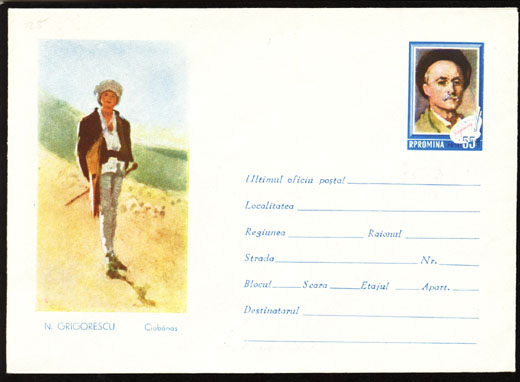 RPROMINA 55
Ultimul oficiu poștal
Localitatea
Regiunea Raionul
Strada Nr.
Blocul Scara Etajul Apart.
Destinatarul
N. GRIGORESCU Ciobănaș